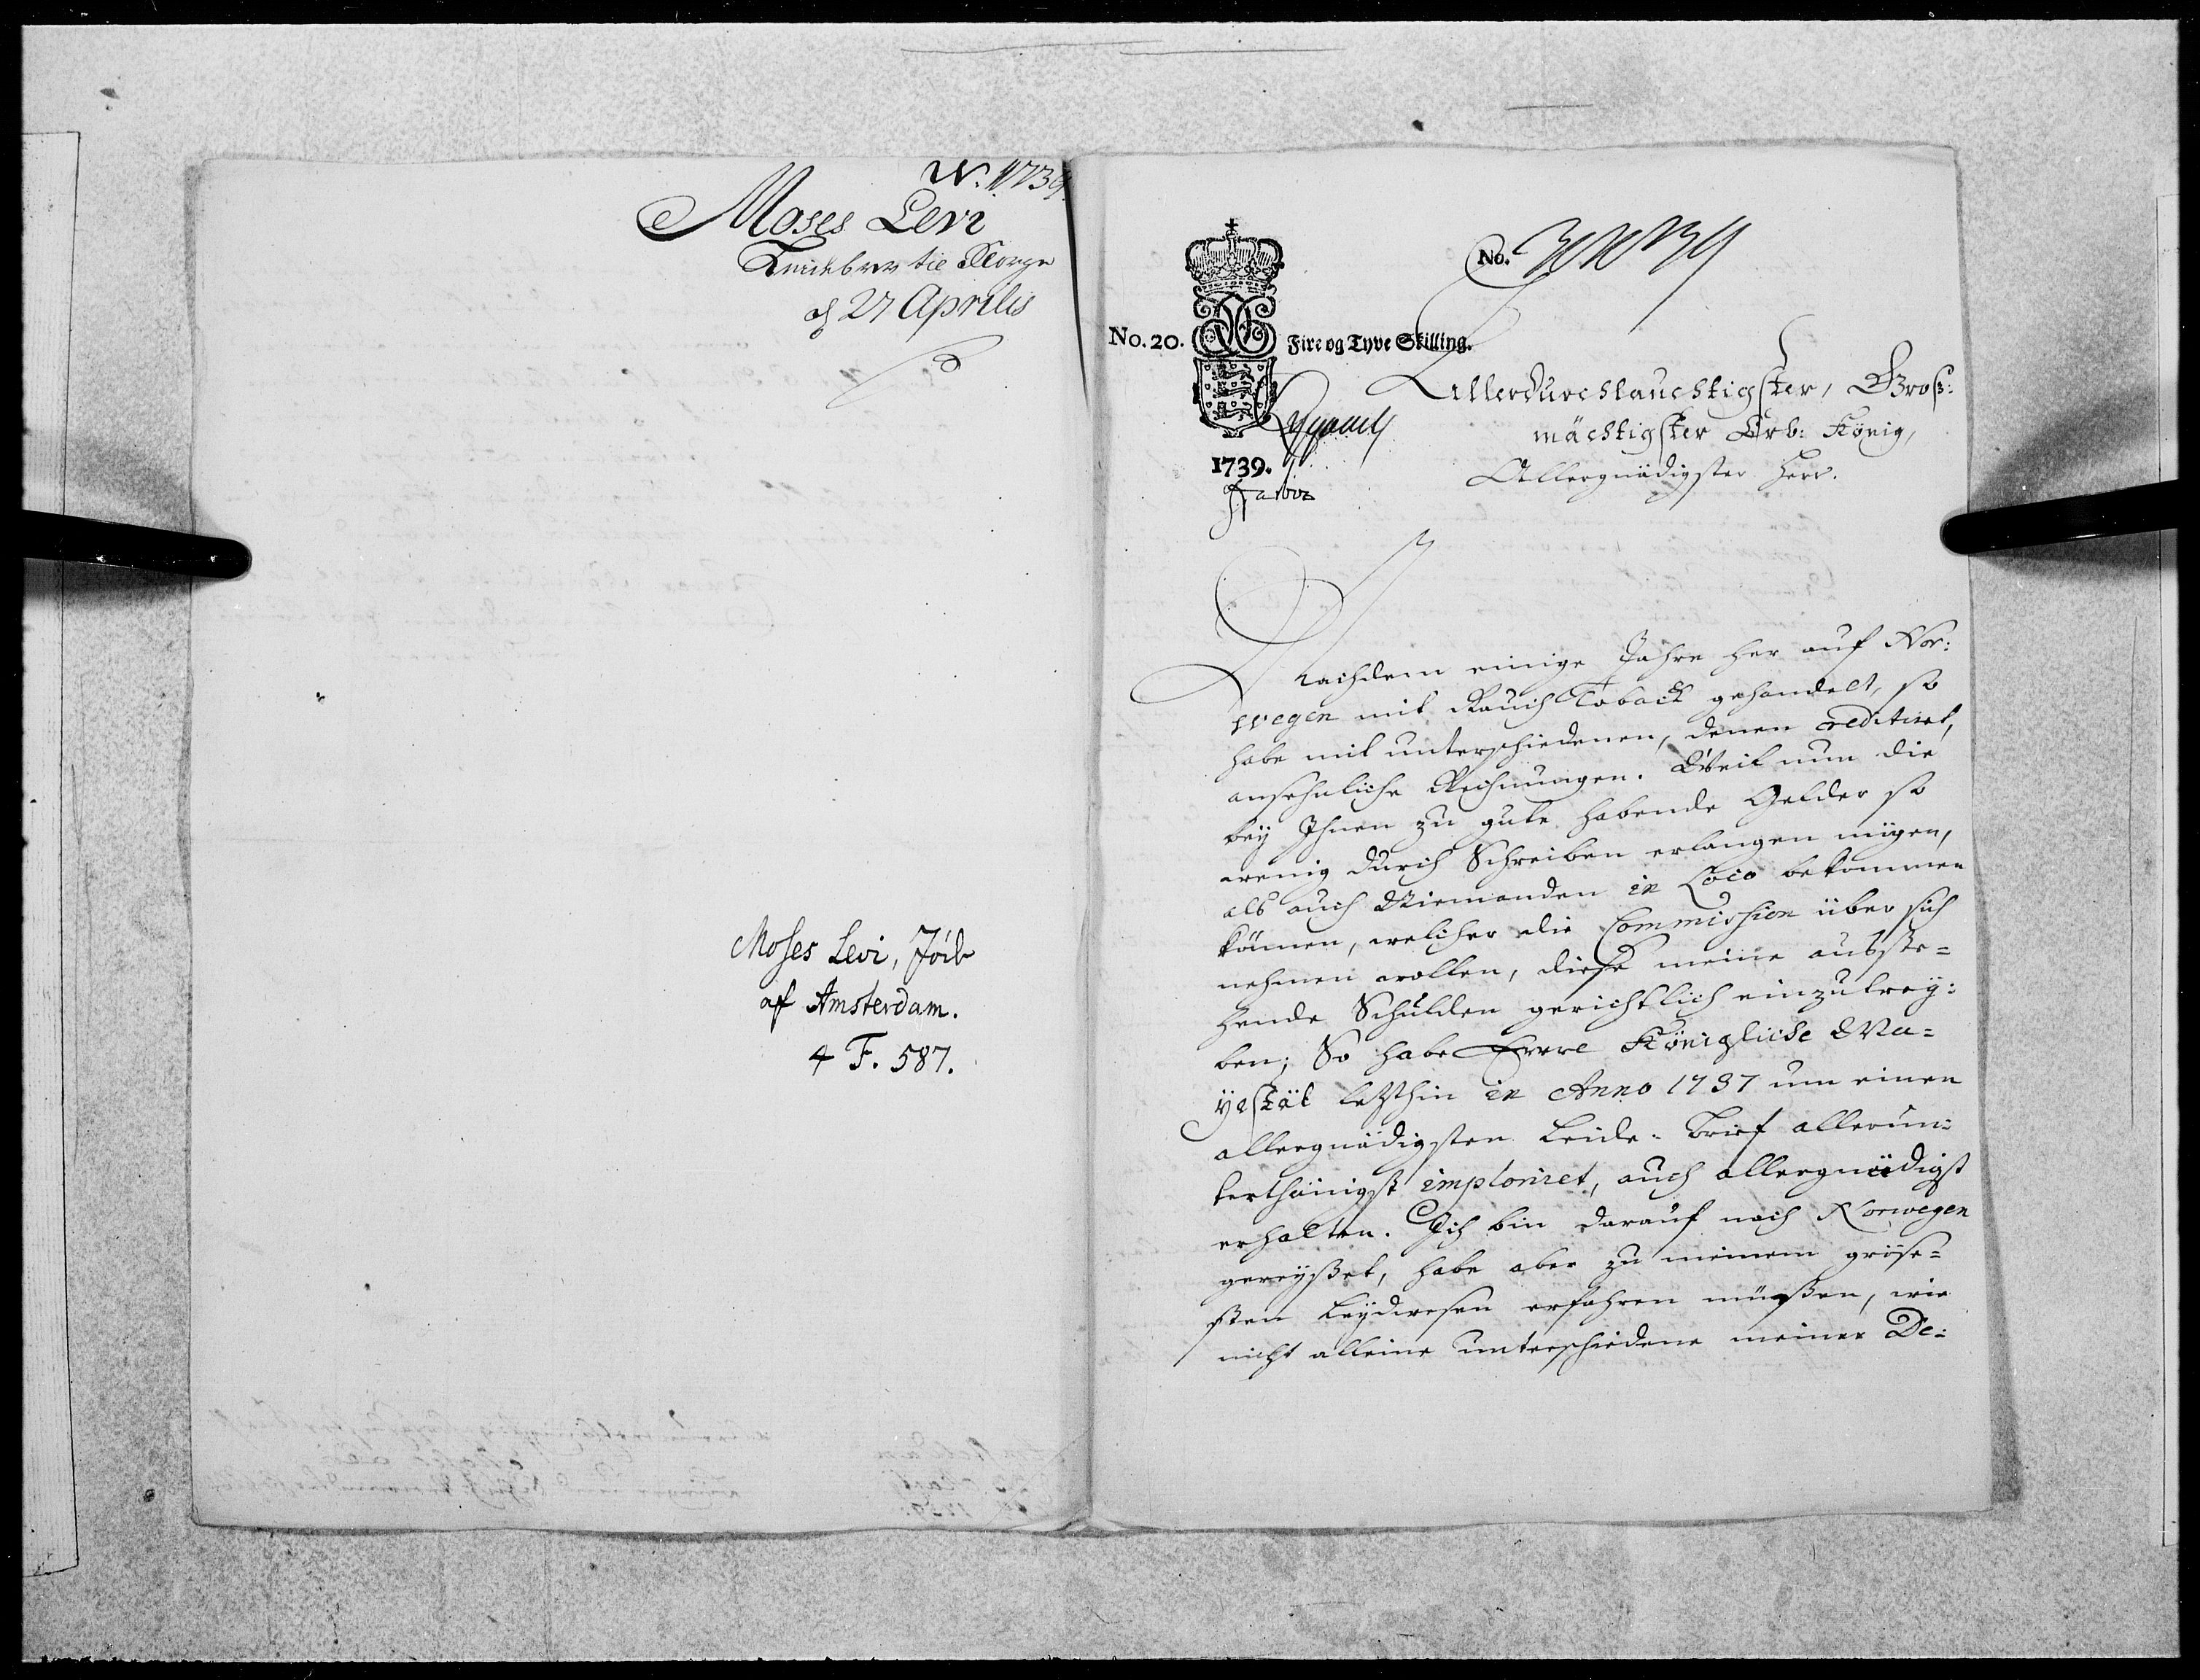 N. 1739.
Moses Levi
Leidebrev til Norge
27 Aprilis
Moses Levi, Jöde
af Amsterdam.
4 F. 587.
No.
No. 20.
Fire og Tyve Skilling.
1739.
Allerdurchlauchtigster, Gros:
mächtigster Erb: König,
Allergnädigster Herr.
Nachdem einige Jahre her auf Nor:
wegen mit Rauch Toback gehandelt, so
habe mit unterschiedenen, denen creditiret,
ansehnliche Rechnungen. Weil nun die
bey Ihnen zu gute habende Gelder so
wenig durch Schreiben erlangen mögen,
als auch Niemanden in Loco bekommen
können, welcher die Commission über sich
nehmen wollen, diese meine ausste=
hende Schulden gerichtlich einzutrei:
ben; So habe Ewre Königliche Ma=
yestät letzthin in Anno 1737 um einen
allergnädigsten Leide-Brief allerun:
terthänigst imploriret, auch allergnädigst
erhalten. Ich bin darauf nach Norwegen
gereyßet, habe aber zu meinem grösse=
sten Leydwesen erfahren müßen, wie
nicht alleine unterschiedene meiner De: